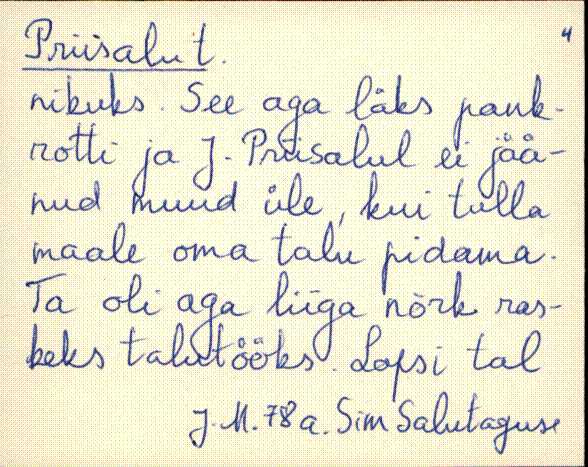 Priisalu t. 4
nikuks. See aga läks pank-
rotti ja J. Priisalul ei jää-
nud muud üle, kui tulla
maale oma talu pidama.
Ta oli aga liiga nõrk ras-
keks talutööks. Lapsi tal
J. M. 78 a. Sim Salutaguse